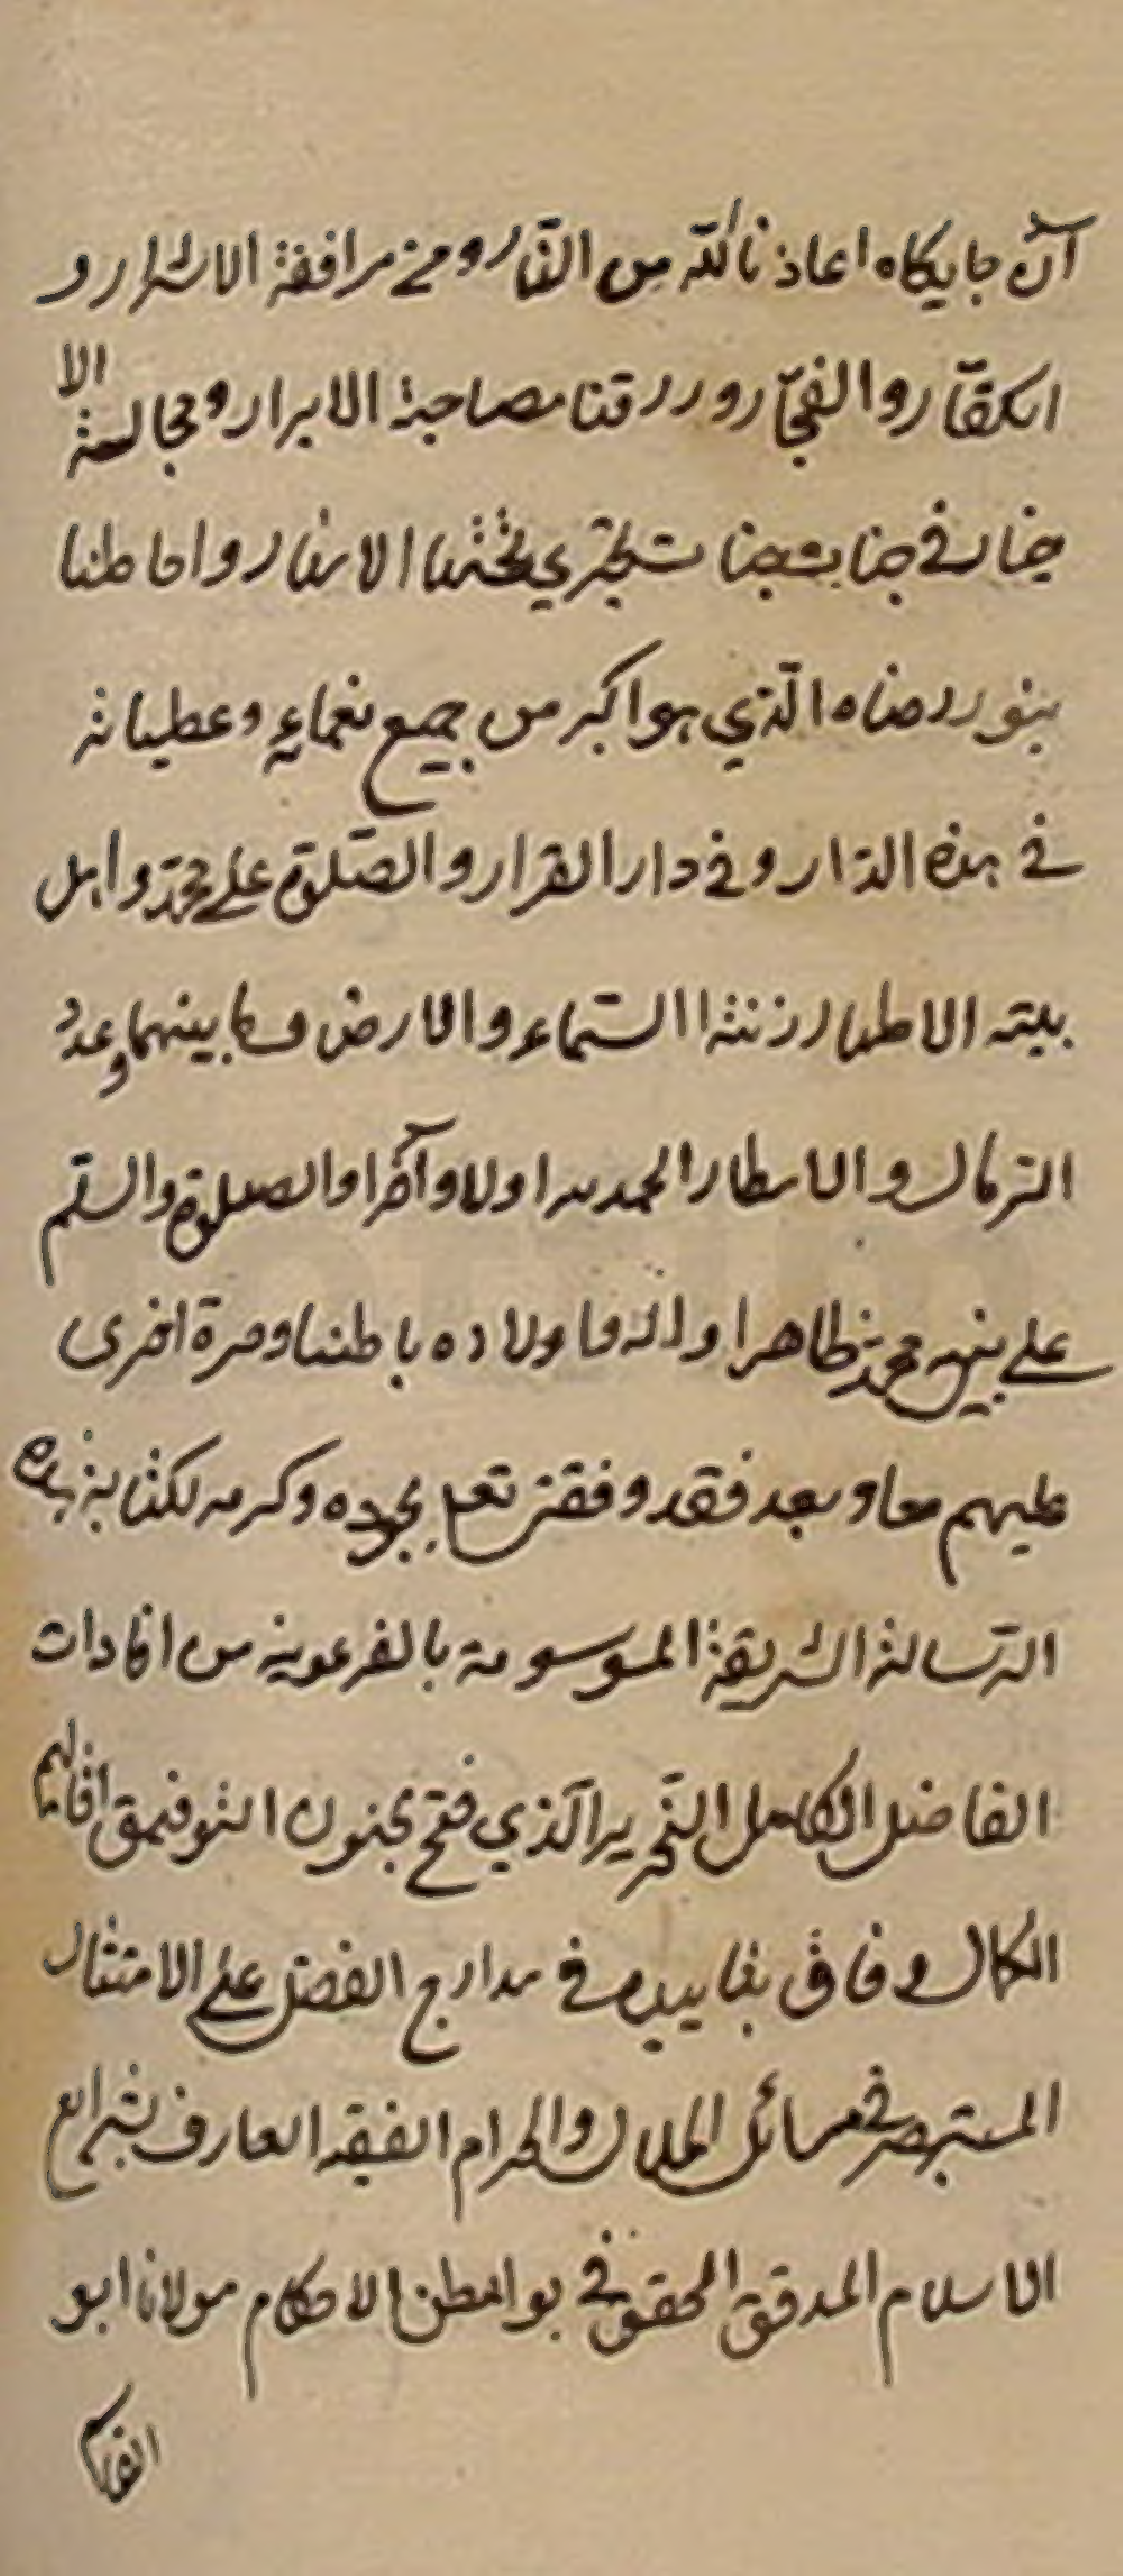 آن جایکاه اعاذنا الله من النّار و من مرافقة الاشرار و
الکفّار و الفجّار و رزقنا مصاحبة الابرار و مجالسة الا
خیار فی جنات تجری تحتها الانهار و احاطنا
بنور رضاه الّذی هو اکبر من جمیع نعمایه و عطیاته
فی هذه الدّار و فی دار القرار و الصّلوة علی محمّد و اهل
بیته الاطهار زنة السّماء و الارض و ما بینهما و عدد
الرّمال و الامطار الحمد لله اولا و آخرا و الصلوة و السّلم
علی نبیه محمد ظاهرا و اله و اولاده باطنا و مرة اخری
علیهم معا و بعد فقد وفقنی تعلی بجوده و کرمه لکتابة هذه
الرّسالة الشریفة الموسومة بالفرعونیه من افادات
الفاضل الکامل النّحریر الّذی فتح بجنود التوفیق اقالیم
الکمال و فاق بتاییده فی مدارج الفضل علی الامثال
المستبصر فی مسائل الحلال و الحرام الفقیه العارف بشرایع
الاسلام المدقق المحقق فی بواطن الاحکام مولانا ابو
القاسم